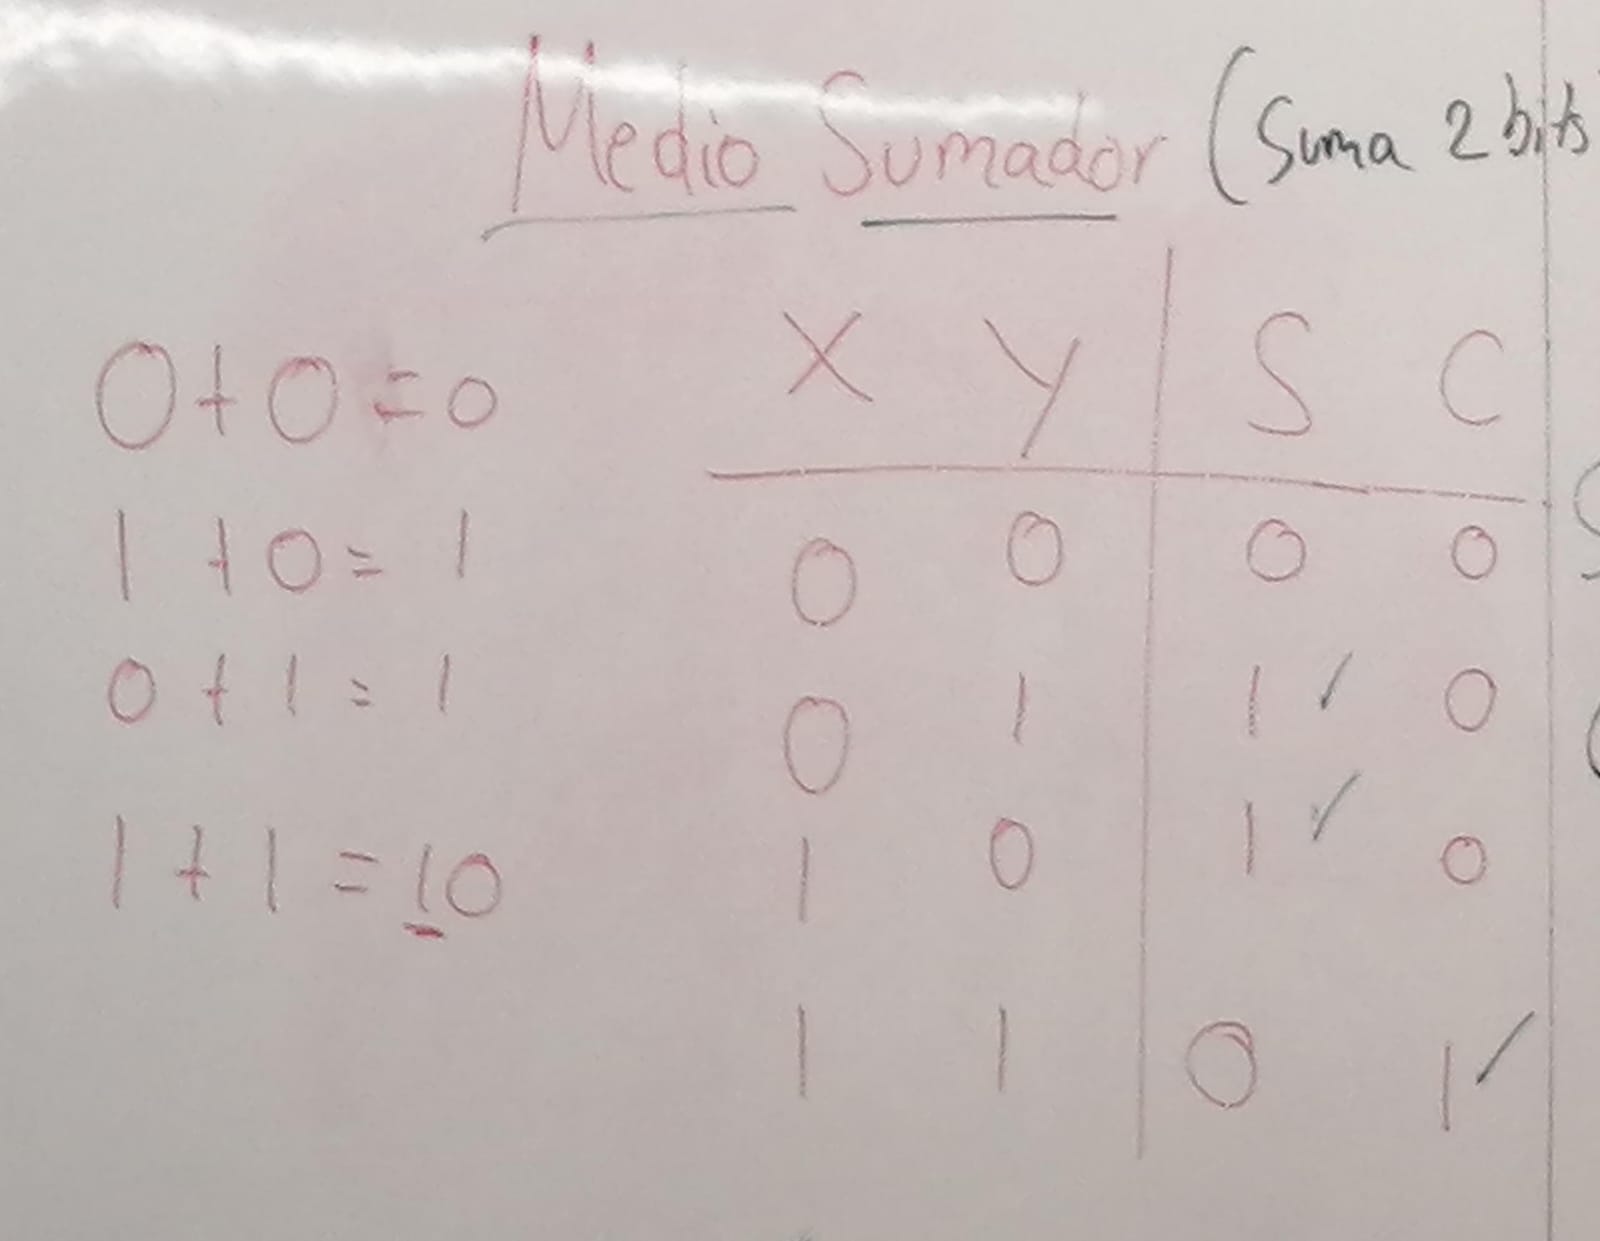 Medio Sumador (Suma 2 bits
0+0=0
1+0=1
0+1=1
1+1=10
X Y S C
0 0 0 0
0 1 1✓ 0
1 0 1✓ 0
1 1 0 1✓